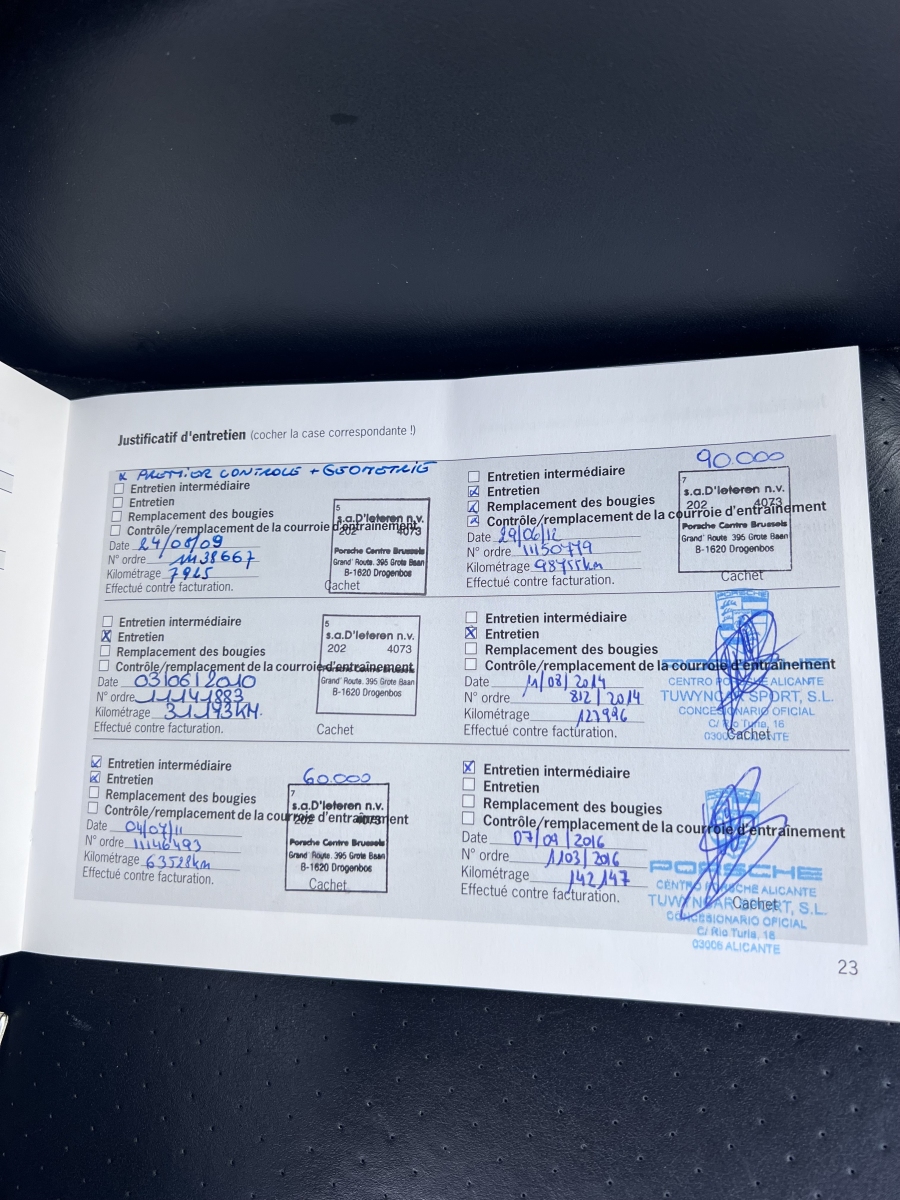 Justificatif d'entretien (cocher la case correspondante !)
x PREMIER CONTROLE + GEOMETRIE
Entretien intermédiaire
Entretien
Remplacement des bougies
Contrôle/remplacement de la courroie d'entraînement
Date 24/08/09
N° ordre
Kilométrage
Effectué contre facturation.
5
s.a.D'Ieteren n.v.
202 4073
Porsche Centre Brussels
Grand' Route. 395 Grote Baan
B-1620 Drogenbos
Cachet
Entretien intermédiaire
X Entretien
Remplacement des bougies
Contrôle/remplacement de la courroie d'entraînement
Date 03/06/2010
N° ordre 11141883
Kilométrage 31193KM.
Effectué contre facturation.
5
s.a.D'Ieteren n.v.
202 4073
Grand' Route. 395 Grote Baan
B-1620 Drogenbos
Cachet
60.000
Entretien intermédiaire
Entretien
Remplacement des bougies
Contrôle/remplacement de la courroie d'entraînement
Date 04/07/11
N° ordre 11146493
Kilométrage 63528km
Effectué contre facturation.
7
s.a.D'Ieteren n.v.
202 4073
Porsche Centre Brussels
Grand' Route. 395 Grote Baan
B-1620 Drogenbos
Cachet
90.000
Entretien intermédiaire
Entretien
Remplacement des bougies
Contrôle/remplacement de la courroie d'entraînement
Date 29/06/12
N° ordre 11150779
Kilométrage 98755km
Effectué contre facturation.
7
s.a.D'Ieteren n.v.
202 4073
Porsche Centre Brussels
Grand' Route. 395 Grote Baan
B-1620 Drogenbos
Cachet
Entretien intermédiaire
X Entretien
Remplacement des bougies
Contrôle/remplacement de la courroie d'entraînement
Date 11/08/2014
N° ordre 812/2014
Kilométrage
Effectué contre facturation.
CENTRO PORSCHE ALICANTE
TUWYNCAR SPORT, S.L.
CONCESIONARIO OFICIAL
C/ Río Turia, 16
ALICANTE
Cachet
X Entretien intermédiaire
Entretien
Remplacement des bougies
Contrôle/remplacement de la courroie d'entraînement
Date 07/09/2016
N° ordre 1103/2016
Kilométrage 142147
Effectué contre facturation.
PORSCHE
CENTRO PORSCHE ALICANTE
TUWYNCAR SPORT, S.L.
CONCESIONARIO OFICIAL
C/ Río Turia, 18
03006 ALICANTE
Cachet
23